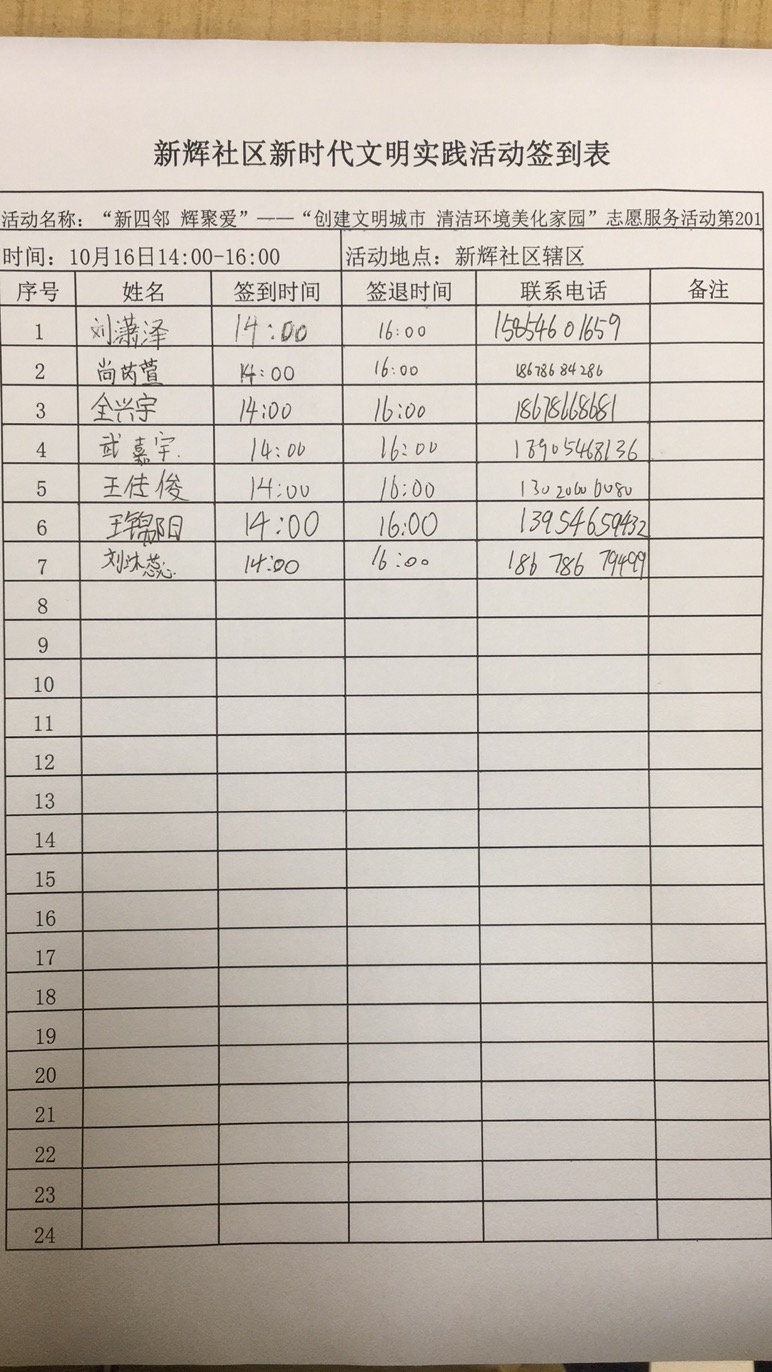 新辉社区新时代文明实践活动签到表
活动名称：“新四邻 辉聚爱”——“创建文明城市 清洁环境美化家园”志愿服务活动第201
时间：10月16日14:00-16:00 活动地点：新辉社区辖区
序号 姓名 签到时间 签退时间 联系电话 备注
1 刘潇泽 14:00 16:00 15854601659
2 尚芮萱 14:00 16:00 18678684286
3 全兴宇 14:00 16:00 18678668681
4 武嘉宇 14:00 16:00 13905468136
5 王佳俊 14:00 16:00
6 王锦阳 14:00 16:00 13954659432
7 刘沐蕊 14:00 16:00 186 786 79499
8
9
10
11
12
13
14
15
16
17
18
19
20
21
22
23
24